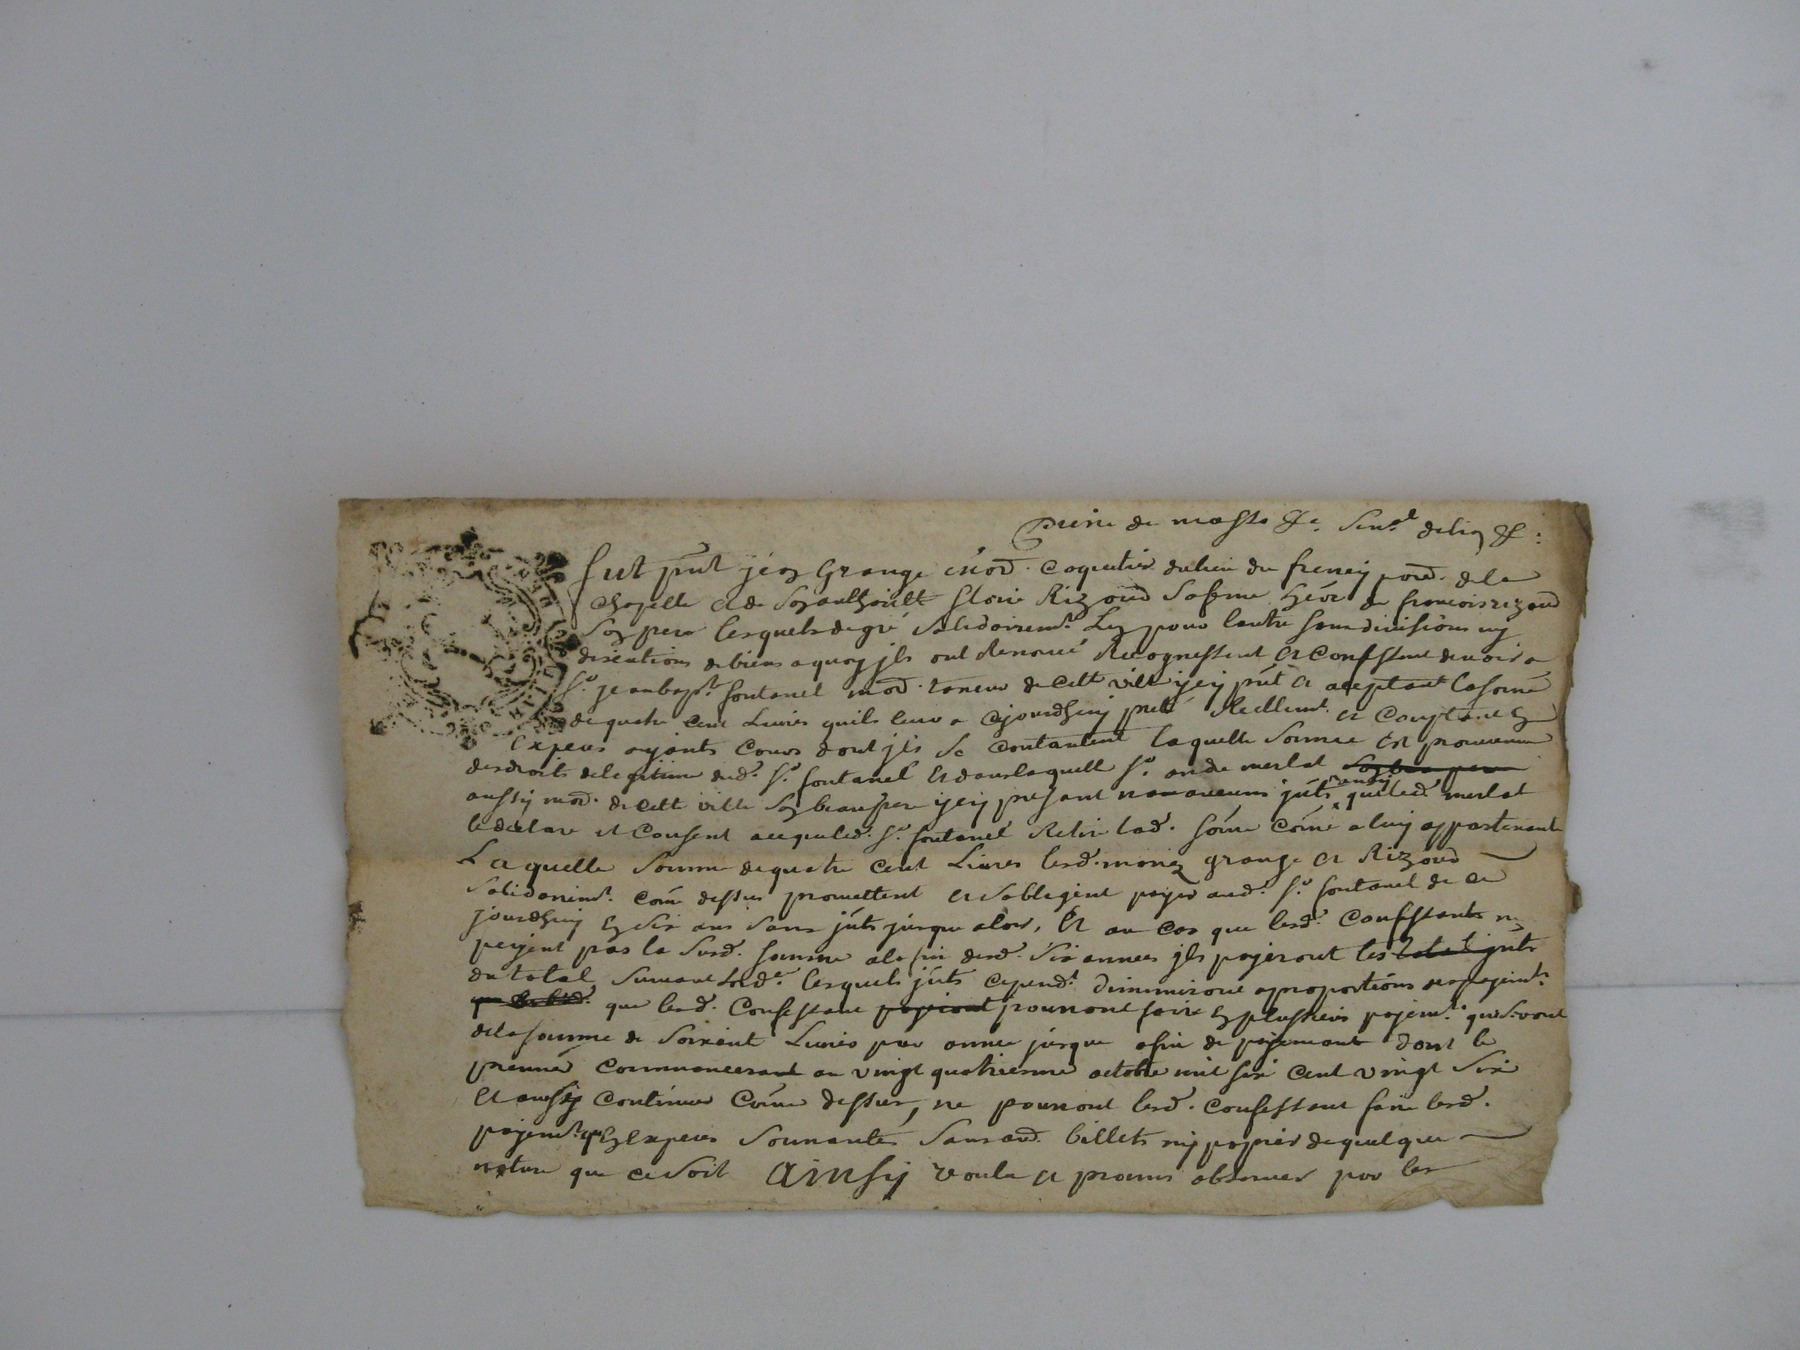 de masse &c. Sen.al
fut pnt jean Grange mrd. Coquetier du lieu du freney parr. de la
Chapelle et de son authorité Rizoud sa feme heôr de francois rizoud
Son pere lesquels de gré solidairemt. Lun pour lautre sans division ny
discutions de biens a quoy jls ont Renoncé Recognessent et Confessent devoir a
Sr. jean bapt. fontanel mrd. taneur de cette ville jcy pnt et aceptant la some
de quatre cent Livres quils leur a ajourdhuy preté Reellemt. et Comptant en
Expeces ayants Cours dont jls se contantent laquelle Somme est provenue
des droits de legitime dud. Sr. fontanel et dans laquelle Sr. merlat son beau pere
aussy mrd. de cette ville Son beaupere jcy presant na aucuns jnts quelud. merlat
le declare et Consent aceque led. Sr. fontanel Retire lad. some come a luy appartenante
Laquelle Somme de quatre cent Livres lesd. mariez grange et Rizoud
Solidairemt. come dessus promettent et soblegent payer aud. Sr. fontanel de ce
jourdhuy en Six ans sans jnts jusque alors, Et au cas que lesd. Confessants ne
peyent pas la susd. somme a la fin desd. Six annees jls payeront les jnts
du total suivant Lord.e lesquels jnts cepend.t diminuiront a proportions des payemts.
que lesd. Confessant payeront pourront faire en plusieurs payemt. qui seront
de la somme de Soixent Livres par annee jusque a fin de payemant dont le
premié Commancerant au vingt quatrieme octobre mil six cent vingt Six
Et aussy continuer Come dessus, ne pourront lesd. confessant faire lesd.
payemt. quEn Expeces Sonnantes Sans aud. billets ny papier de quelque
nature que ce soit Ainsy voulu et promis observer par les